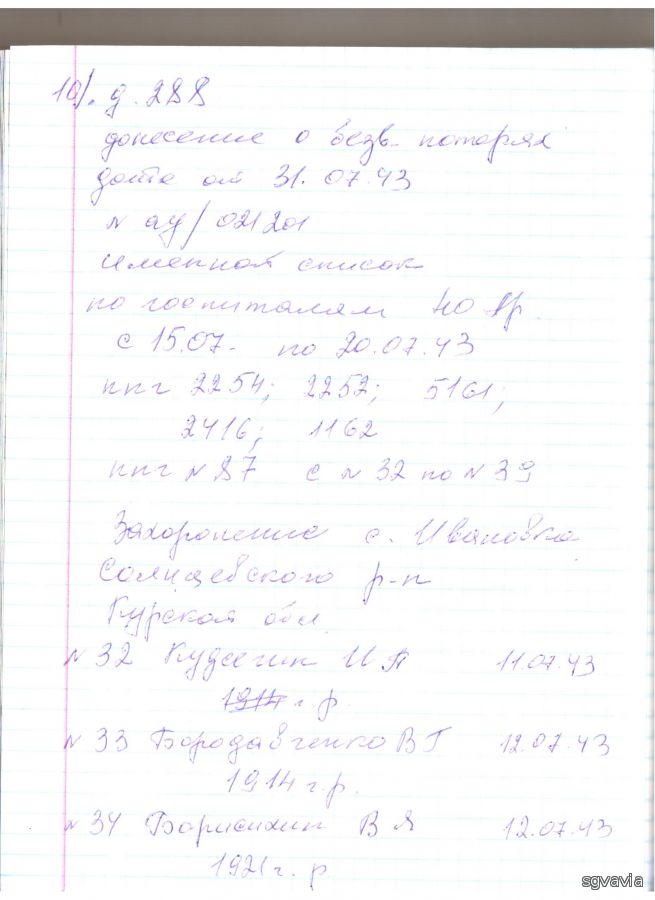 10/. д. 288
донесение о безв. потерях
дата от 31.07.43
N ау/021201
именной список
по госпиталям 40 Ар.
с 15.07. по 20.07.43
ппг 2254; 2252; 5161;
2416; 1162
ппг N 87 с N 32 по N 39
Захоронение с. Ивановка
Солнцевского р-н
Курской обл
N 32 И П 11.07.43
1914 г.р.
N 33 Бородавченко В Г 12.07.43
1914 г.р.
N 34 Борисихин В Я 12.07.43
1921 г. р
sgvavia